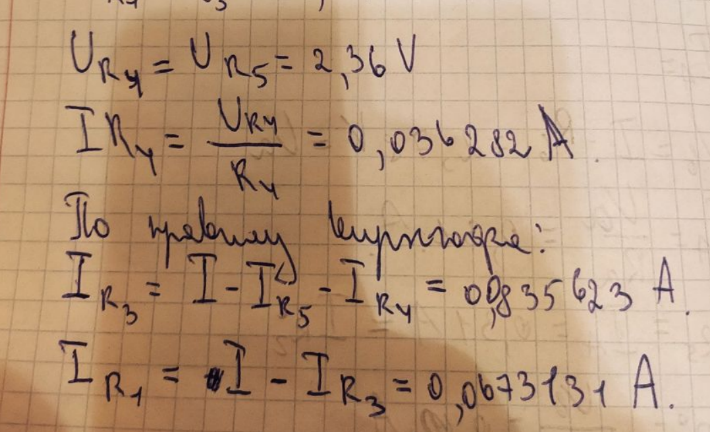 U_R4 = U_R5 = 2,36 V
I_R4 = U_R4 / R_4 = 0,036282 A.
По правилу Кирхгофа:
I_R3 = I - I_R5 - I_R4 = 0,0835623 A.
I_R1 = I - I_R3 = 0,0673131 A.